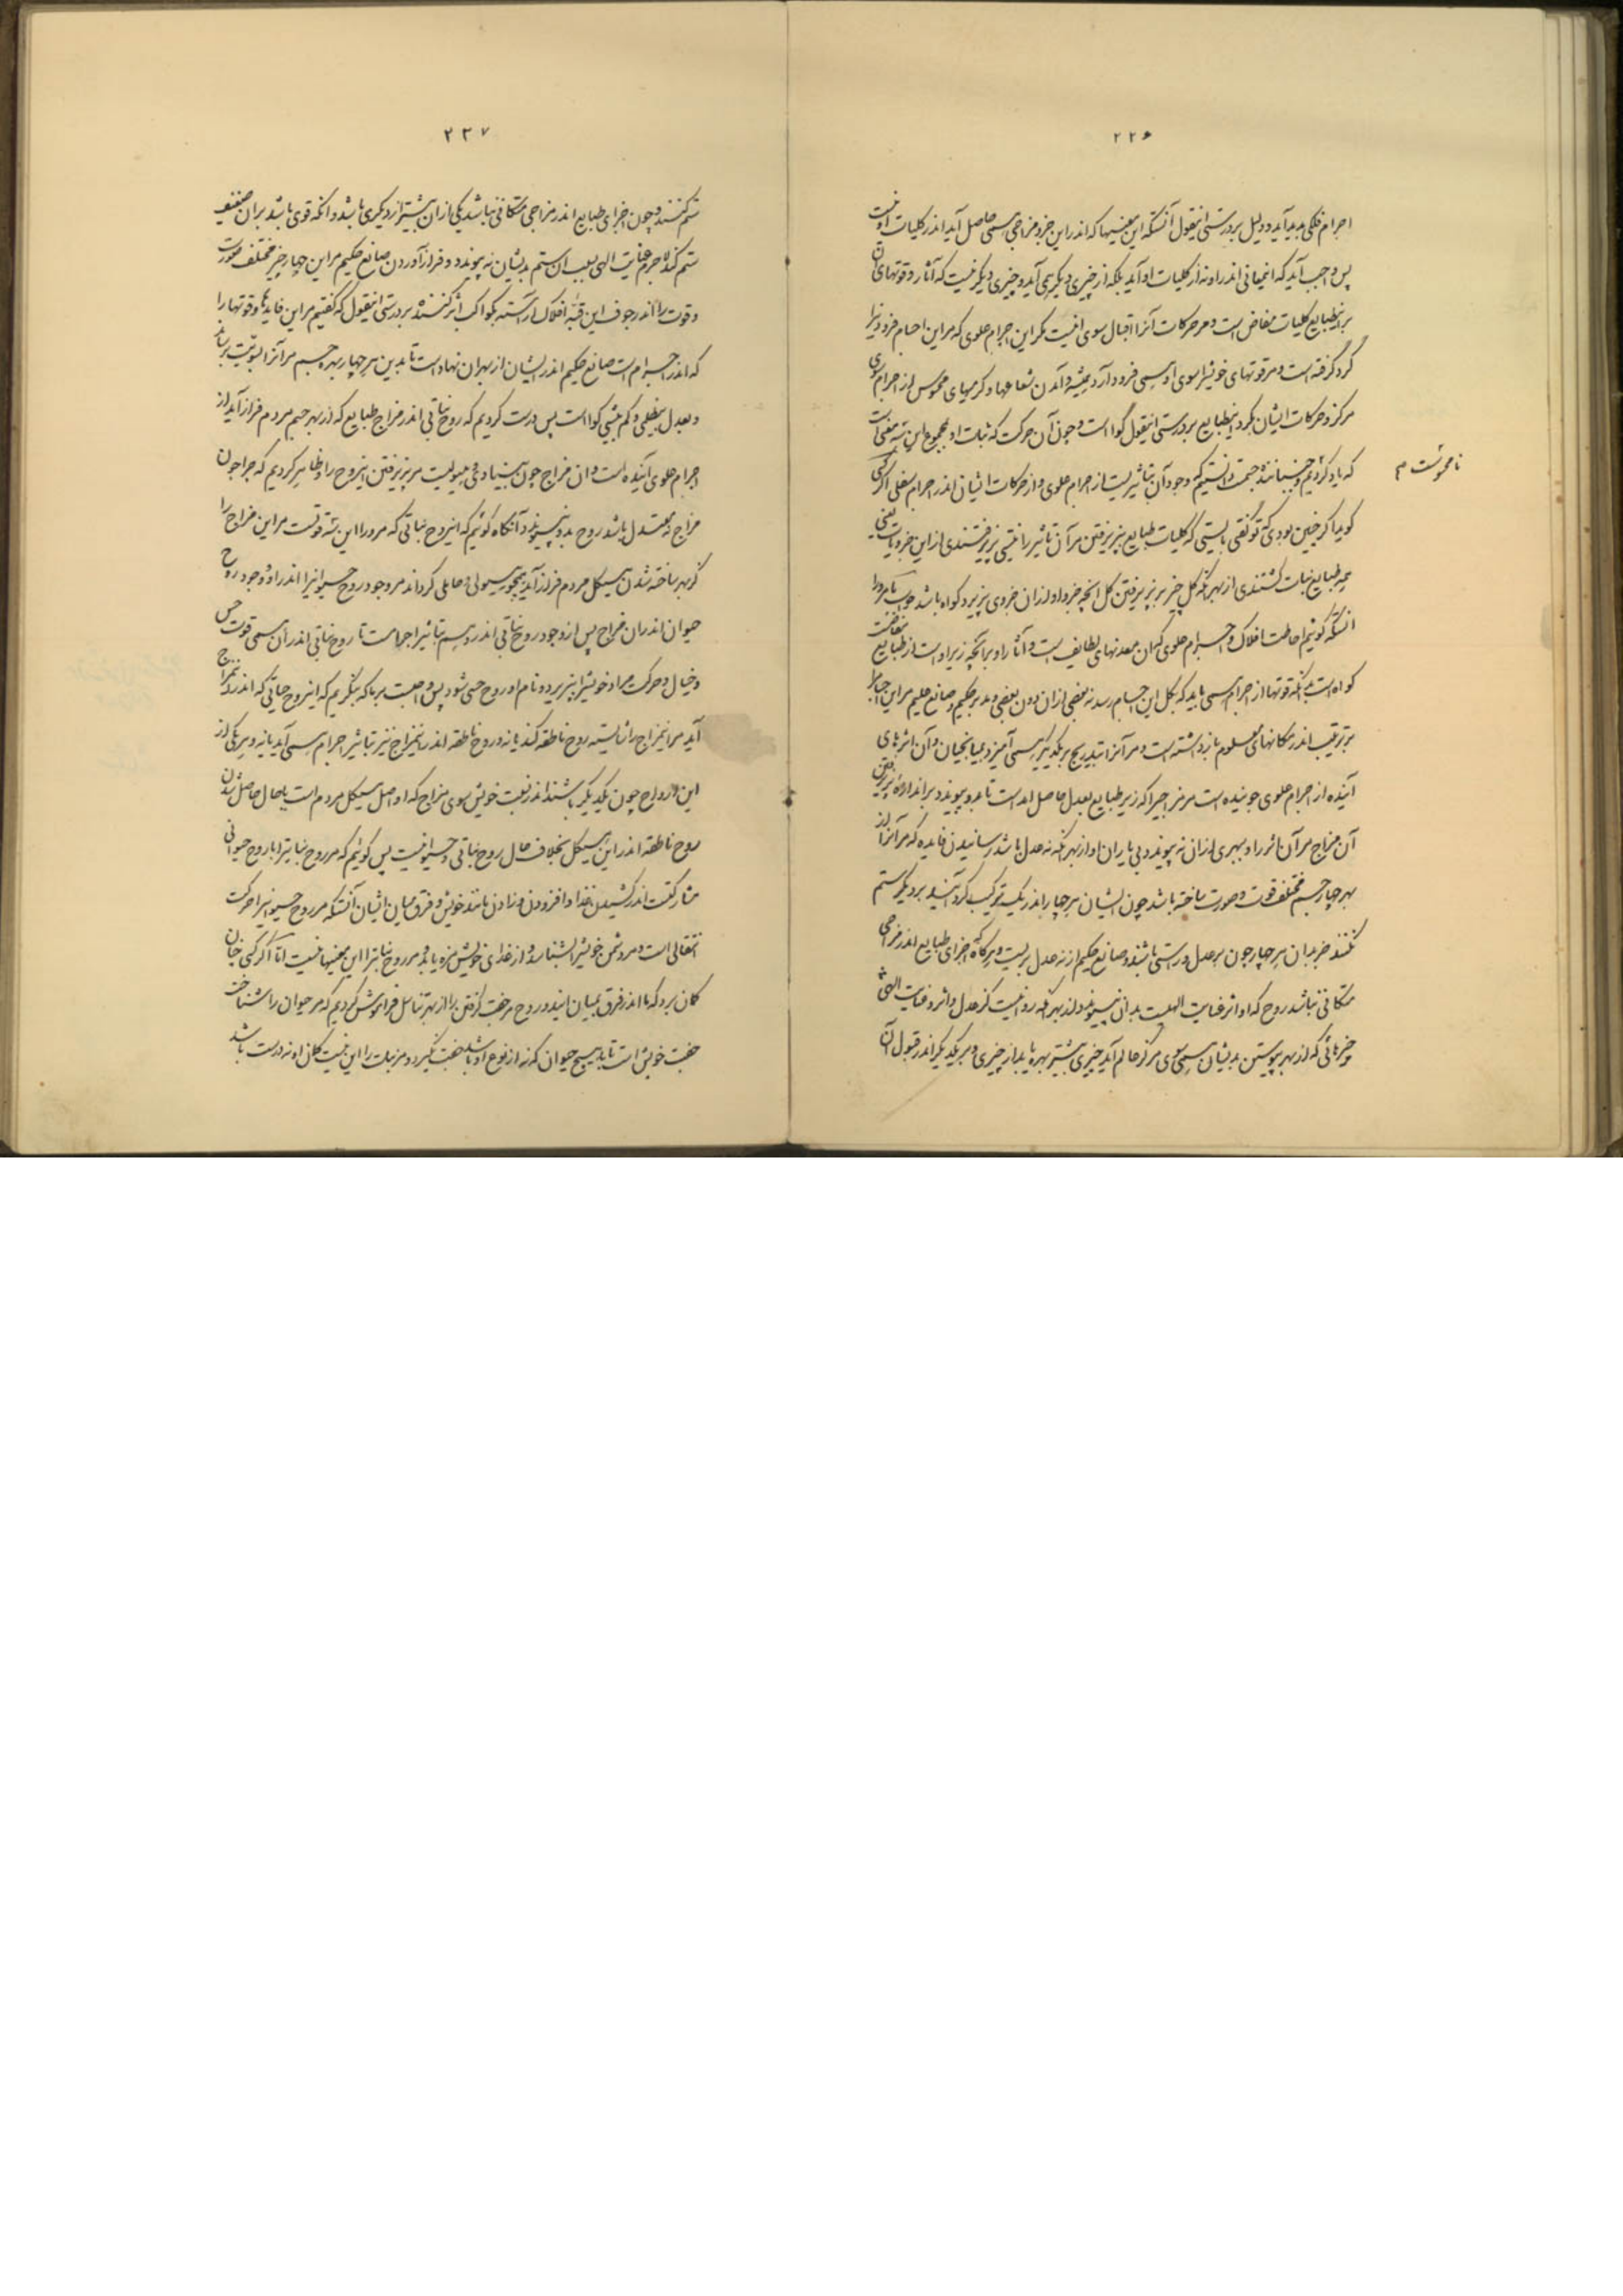 ۲۲۶
اجرام فلکی پدید آید و دلیل بر درستی اینقول آنستکه این معنیها که اندر این جزو مزاجی همی حاصل آید اندر کلیات او نیست
پس واجب آید که این معانی اندر او نه از کلیات او آید بلکه از چیزی دیگر همی آید و چیزی دیگر نیست که آثار و قوتهای آن
بر این طبایع کلیات مفاض است و مر حرکات آنرا اقبال سوی اینست مگر این اجرام علوی که مر این اجسام فرودین را
گرد گرفته است و مر قوتهای خویش را سوی او همی فرود آرد همیشه و آمدن شعاعها و گرمیهای محسوس از اجرام سوی
مرکز و حرکات ایشان بگرد این طبایع بر درستی اینقول گوا است و چون آن حرکت که نبات او مجموع این سه معنی است
که یاد کردیم و جنبانندهٔ جست دانستیم که وجود آن بتاثیریست از اجرام علوی و از حرکات ایشان اندر اجرام سفلی اگر کسی
نامحسوست م
گوید اگر چنین بودی که تو گفتی بایستی که کلیات طبایع بپذیرفتن مر آن تاثیر را نفسی پذیرفتندی از این جزویات یعنی
همه طبایع نبات گشتندی از بهر آنکه کل چیز بر پذیرفتن کل آنچه جزو او از آن جزوی پذیرد گواه باشد جواب ما مر او را
آنستکه گوئیم احاطت افلاک و اجرام علوی که آن معدنهای لطایف است و آثار او بر آنچه زیر او است از طبایع مفاضست
گواه است بر آنکه قوتها از اجرام همی باید که بکل این اجسام رسد نه بعضی از آن دون بعضی و مدبر حکیم و صانع علیم مر این اجسام را
بر ترتیب اندر مکانهای معلوم بازداشته است و مر آنرا بتدریج بر یکدیگر همی آمیزد بمیانجیان و آن اثرهای
آینده از اجرام علوی جوینده است مر مزاجی را که زیر طبایع بعدل حاصل آمد است تا بدو پیوندد بر اندازهٔ پذیرفتن
آن مزاج مر آن اثر را و بهری از آن نه پیوندد بی یاران او از بهر آنکه نه عدل باشد رسانیدن فایده که مر آنرا از
بهر چهار جسم مختلف قوت و صورت ساخته باشد چون ایشان هر چهار اندر یک ترکیب گرد آیند بر دیگر ستم
نکنند جز بدان هر چهار چون بر عدل و راستی باشند و صانع حکیم از نه عدل بریست و هرگاه که اجزای طبایع اندر مزاجی
متکافی نباشد روح که او اثر عنایت الهیست بدان نپیوندد از بهر آنکه روا نیست کز عدل و اثر و عنایت الهی
و چیزهائی که از بهر پیوستن بدیشان همی سوی مرکز عالم آید چیزی بیشتر بهره یابد از چیزی و هر یک دیگر اندر قبول آن
۲۲۷
ستم کنند و چون اجزای طبایع اندر مزاجی متکافی نباشد یکی از آن بیشتر از دیگری باشد و آنکه قوی باشد بر آن ضعیف
ستم کند لاجرم عنایت الهی بسبب آن ستم بدیشان نه پیوندد و فراز آوردن صانع حکیم مر این چهار چیز مختلف صورت
و قوت را اندر جوف این قبهٔ افلاک آراسته بکواکب اثر کننده بر درستی اینقول که گفتیم مر این فایدها و قوتها را
که اندر اجرام است صانع حکیم اندر ایشان از بهر آن نهاده است تا بدین هر چهار بهره جسم مر آنرا بسویت برساند
و بعدل بیغلی و کم بیشی گوا است پس درست کردیم که روح نباتی اندر مزاج طبایع که از بهر جسم مردم فراز آید از
اجرام علوی آینده است و آن مزاج چون بنیادی و هیولیست مر پذیرفتن این روح را و ظاهر کردیم که چرا چون
مزاج نه معتدل باشد روح بدو نپیوندد آنگاه گوئیم که این روح نباتی که مر او را این سه قوتست مر این مزاج را
کز بهر ساخته شدن هیکل مردم فراز آید همچو هیولی و حاملی گرداند مر وجود روح حیوانی را اندر او و وجود روح
حیوان اندر آن مزاج پس از وجود روح نباتی اندر وی هم بتاثیر اجرامست تا روح نباتی اندر آن همی قوت حس
و خیال و حرکت مراد خویش را بپذیرد و نام او روح حسی شود پس واجبست بر ما که بنگریم که این روح حیاتی که اندر این مزاج
آید مر این مزاج را شایستهٔ روح ناطقه کند یا نه و روح ناطقه اندر این مزاج نیز بتاثیر اجرام همی آید یا نه و هر یکی از
این ارواح چون یکدیگر باشند اندر نسبت خویش سوی مزاج که او اصل هیکل مردم است یا حال حاصل شدن
روح ناطقه اندر این هیکل بخلاف حال روح نباتی و حیوانیست پس گوئیم که مر روح نباتی را با روح حیوانی
مشارکتست اندر کشیدن غذا و افزودن و زادن مانند خویش و فرق میان ایشان آنستکه مر روح حیوانی را حرکت
انتقالی است و مر دشمن خویش را بشناسد و از غذای خویش مزه یابد و مر روح نباتی را این معنیها نیست اما اگر کسی چنان
گمان برد که ما اندر فرق بمیان این دو روح مر جفت گرفتن را از بهر تناسل فراموش کردیم که مر حیوان را شناخت
جفت خویش است تا با هیچ حیوان که نه از نوع او باشد جفت نگیرد و مر نبات را این نیست گمان او نه درست باشد